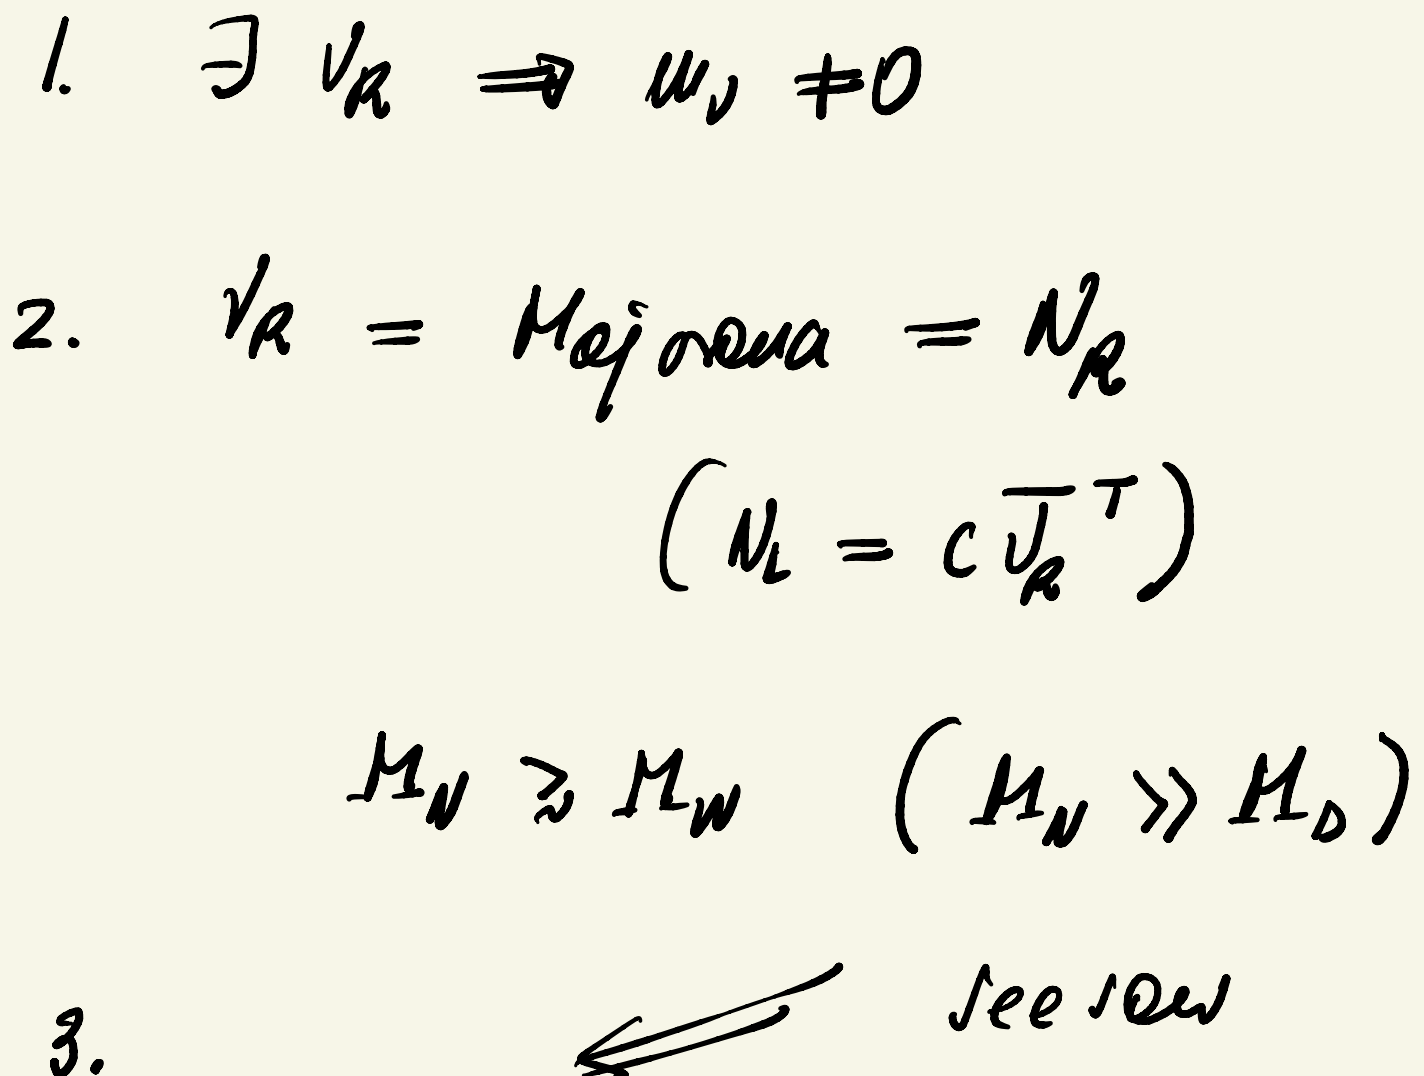 1. ∃ ν_R ⇒ m_ν ≠ 0
2. ν_R = Majorana = N_R
(N_L = C \overline{ν}_R^T)
M_N ≳ M_W (M_N ≫ M_D)
seesaw
3. ⇐